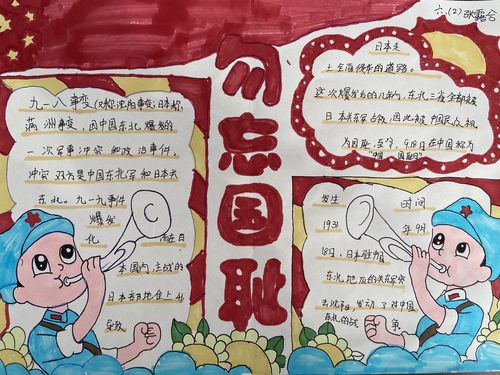 六.(2)
勿忘国耻
九一八事变(又称沈阳事变,日本称
满洲事变,因中国东北爆发的
一次军事冲突和政治事件。
冲突双方是中国东北军和日本关
东北。九一九事件
爆发
化
日
本国内,主战的
日本
地位上升
导致
日本走
上全面侵华的道路。
这次爆发的几年内,东北三省全部被
日本关东军占领,因此被中国民众视
为国耻,至今,9月18日在中国称为
"国耻日"
发生 时间
1931 年9月
18日,日本驻中国
东北地区的关东军突
袭沈阳,发动了对中国
东北的战 争